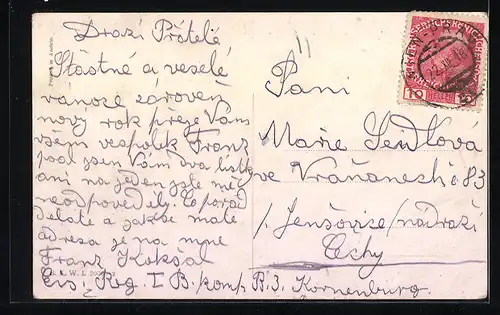 Drazí Přátelé
Štástné a veselé
vánoze zároveň
nový rok přeje Vám
všem vespolek Franz
psal jsem Vám dva lístky
ani na jeden jste mě
neodpověděly. Co pořád
děláte a jak se máte
adresa je na mne
Franz Kokšal
Eis. Reg. I B. komp. R. 3. Kornenburg.
Páni
Marie Seidlová
ve Vraňanech č 83
p. Jenšovice/nadraží
Čechy
10 HELLER 10